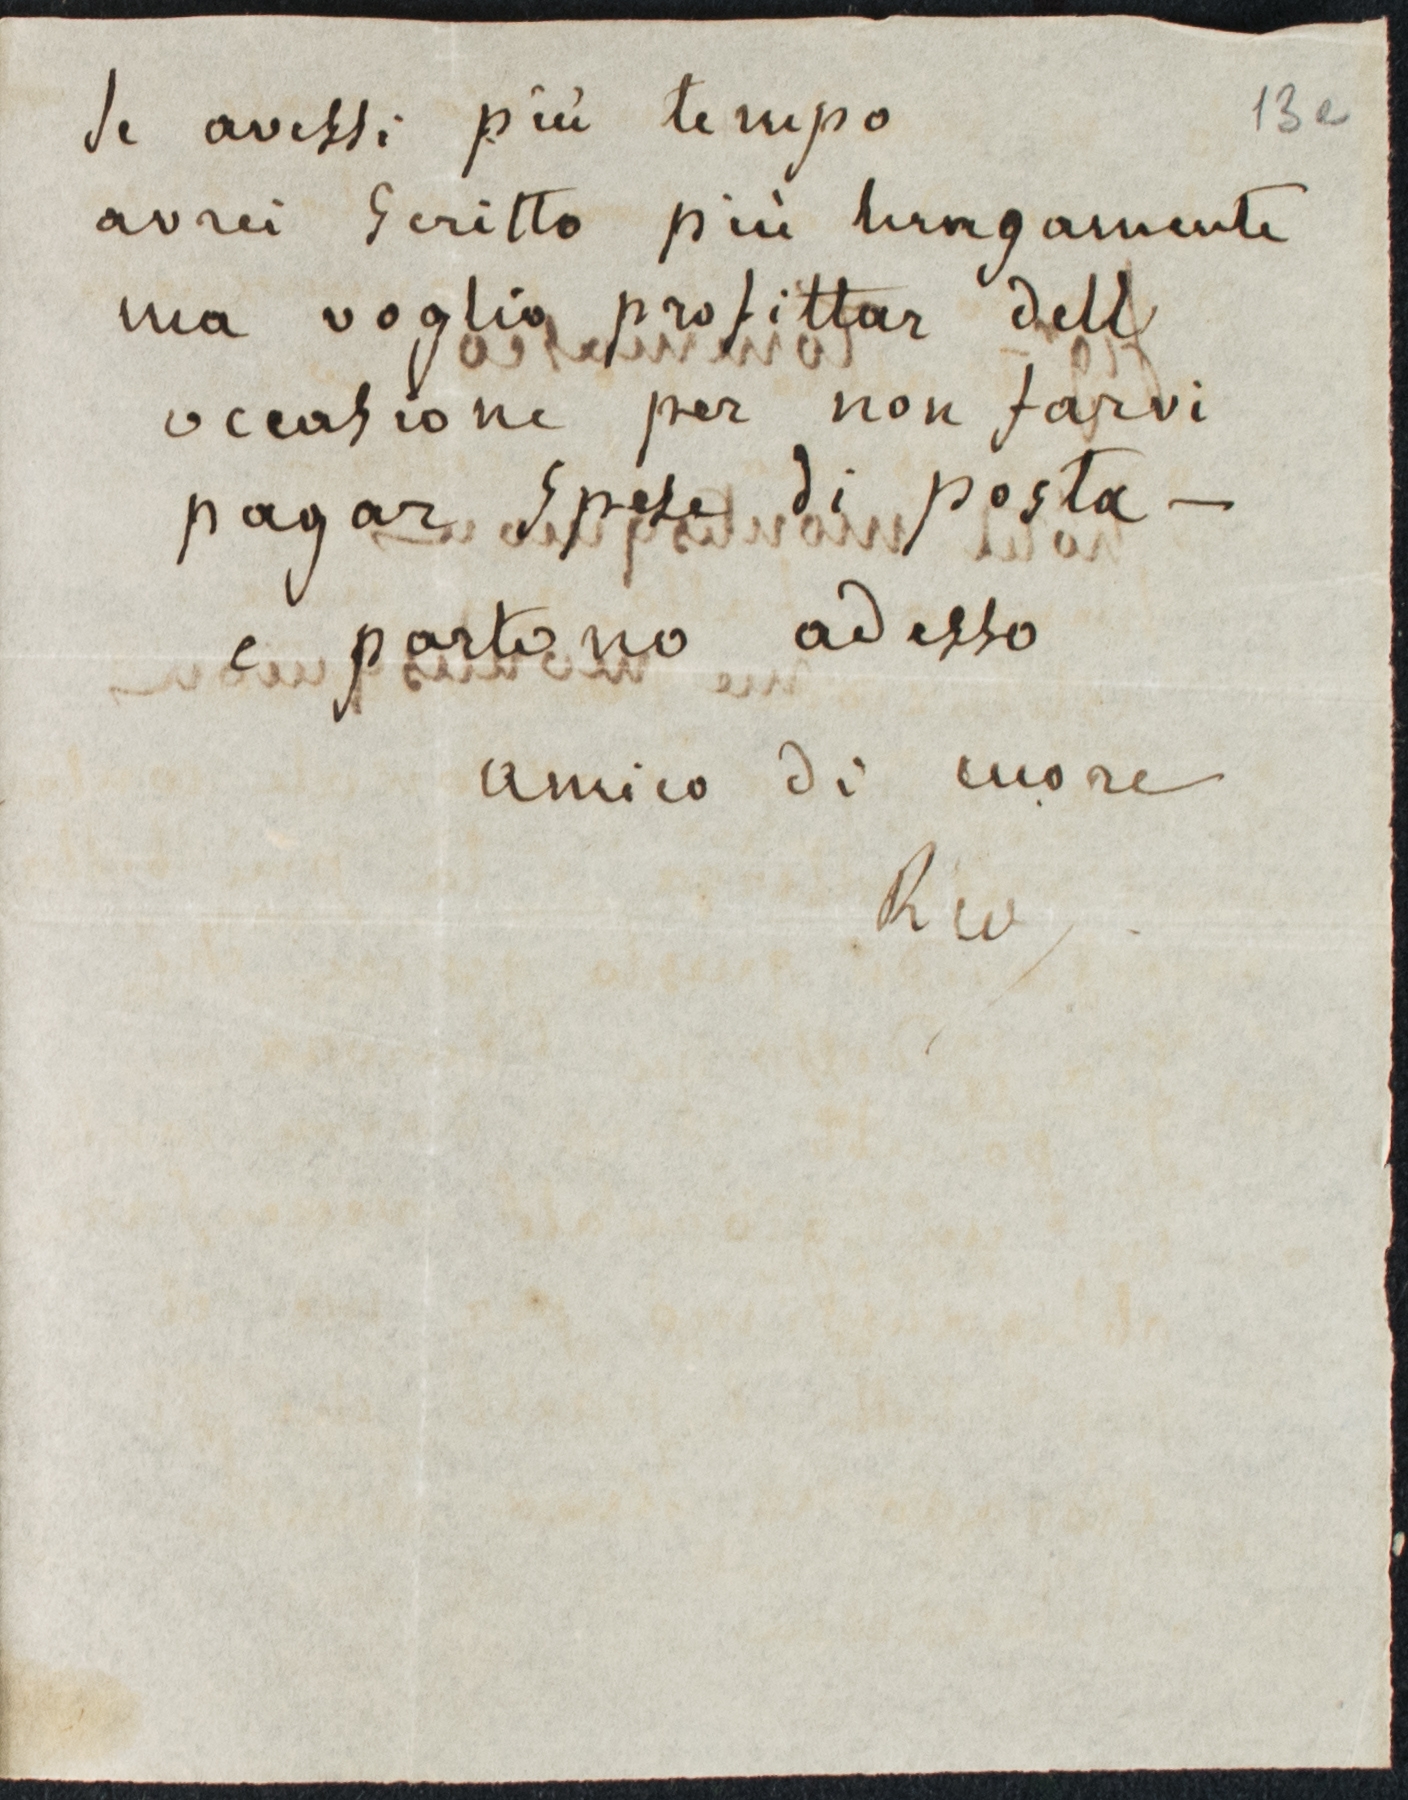 13e
Se avessi più tempo
avrei scritto più lungamente
ma voglio profittar dell
occasione per non farvi
pagar spese di posta —
e partono adesso
amico di cuore